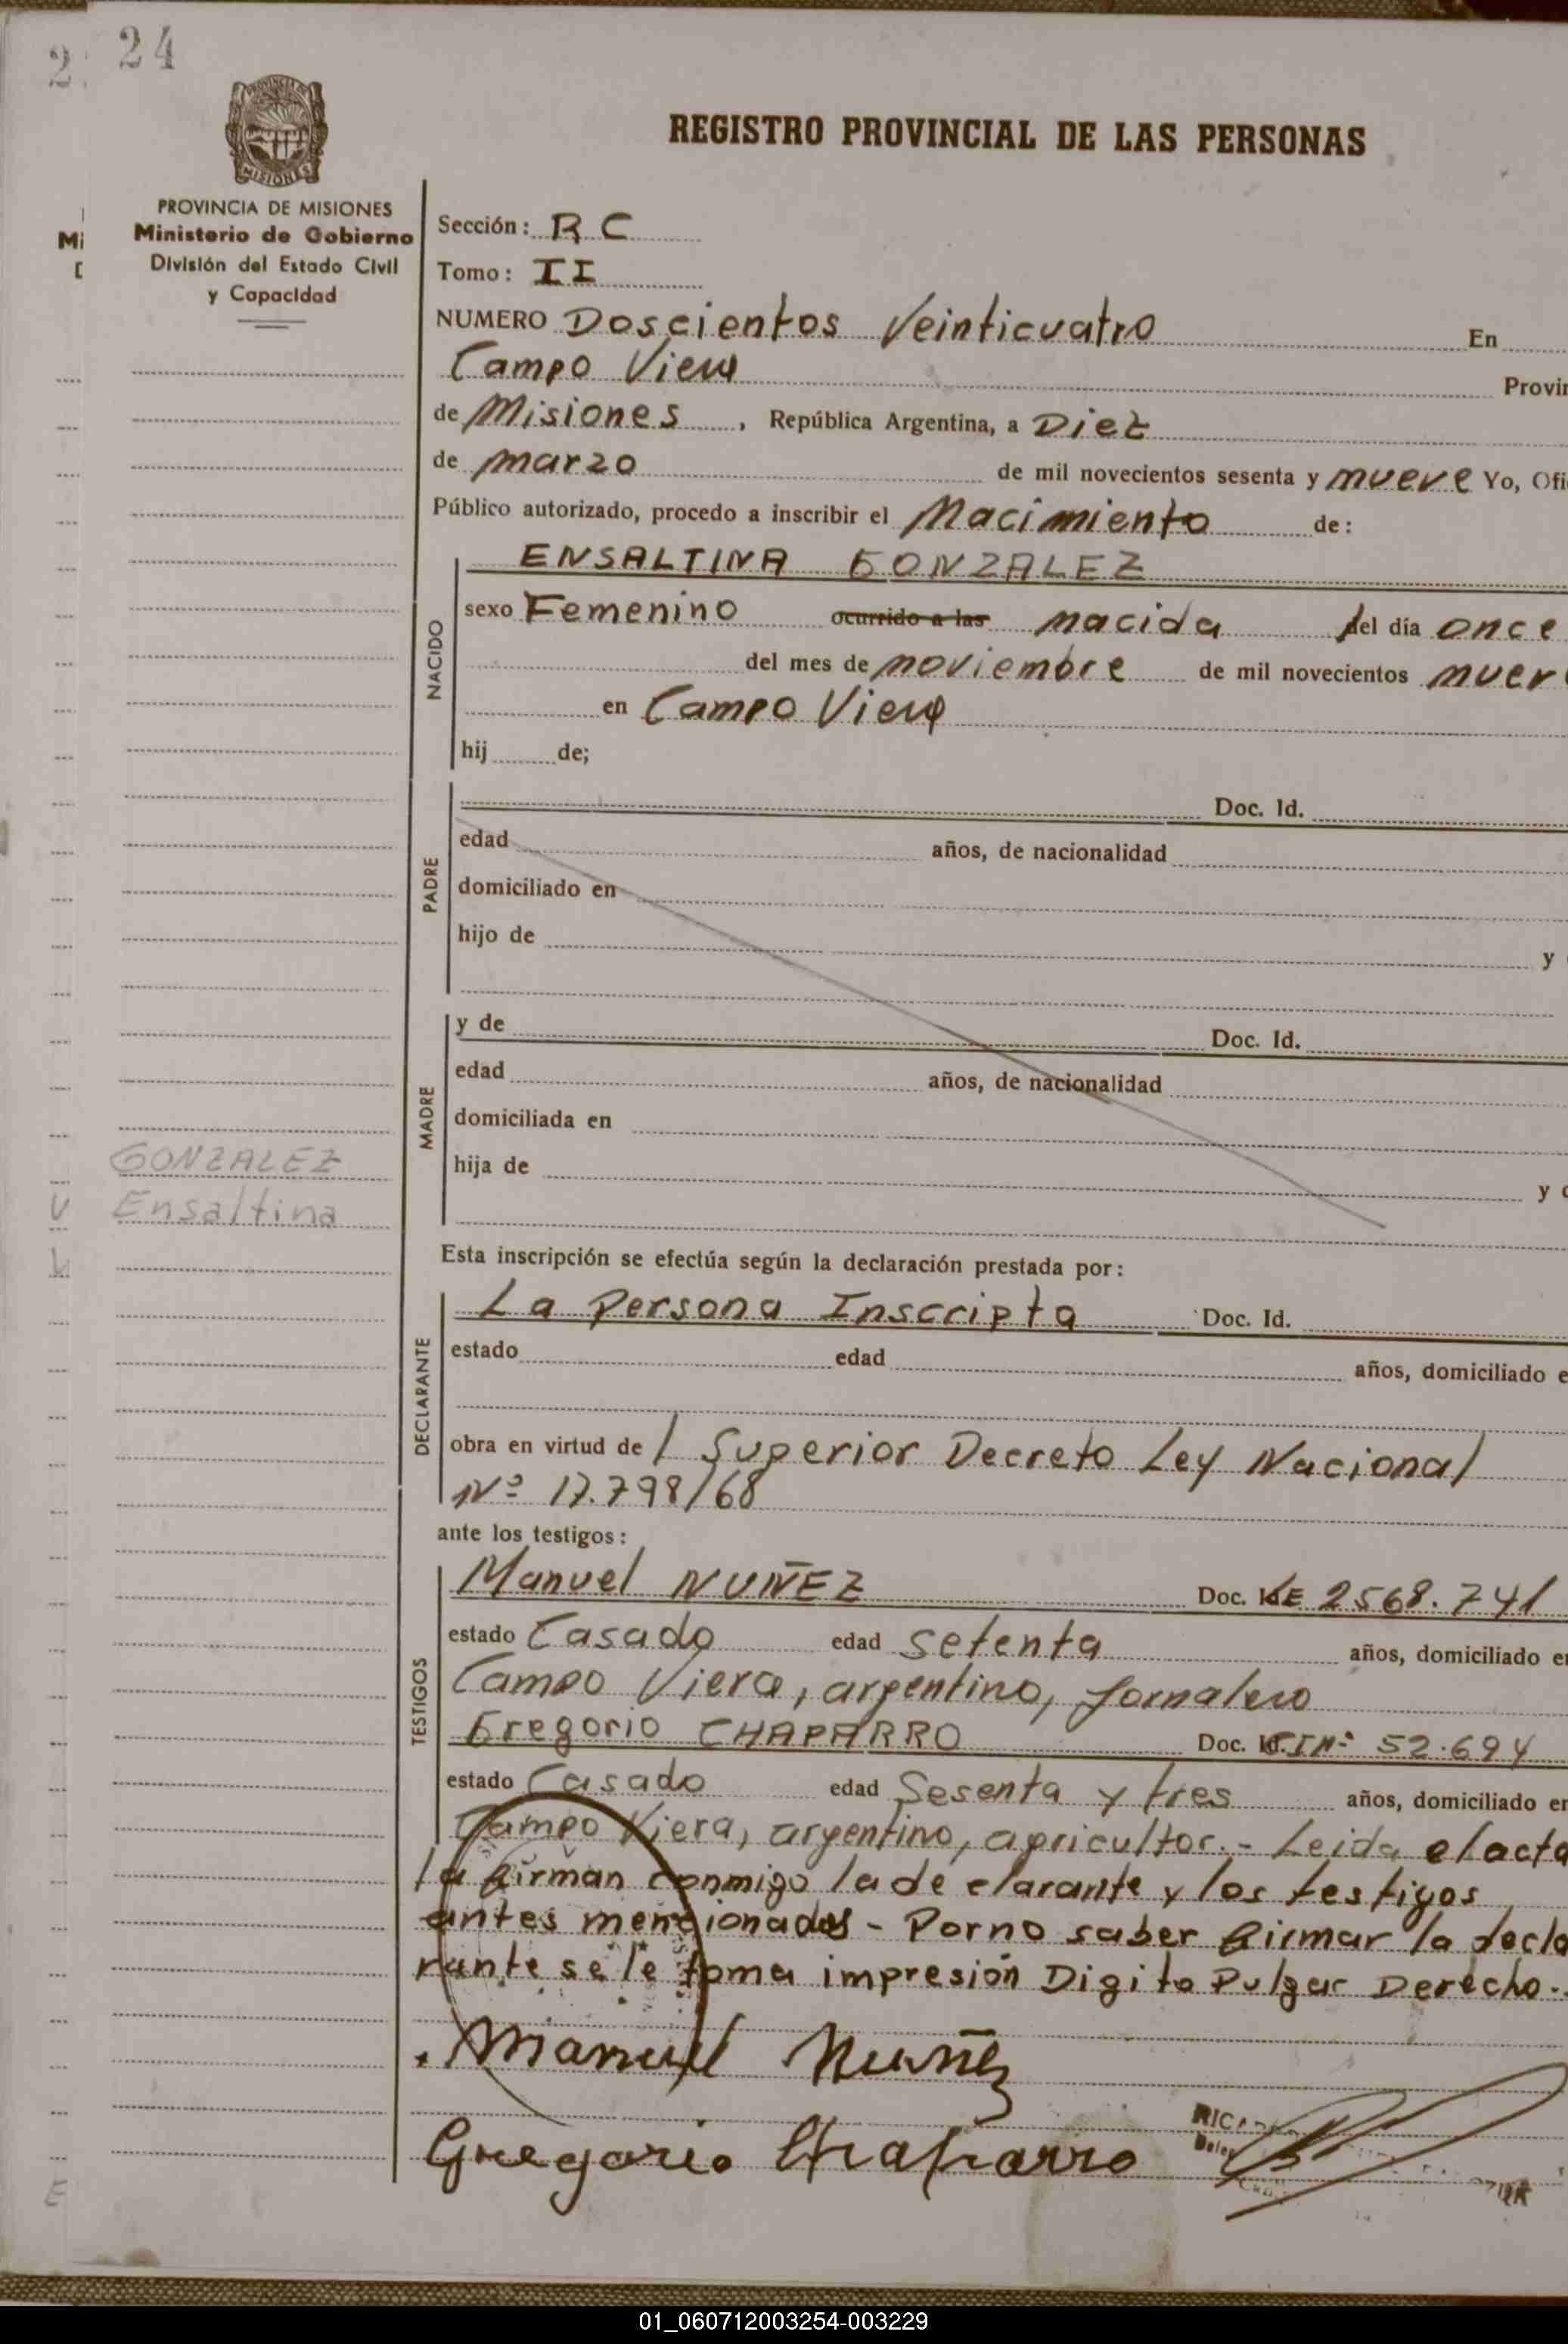 2 24
PROVINCIA DE MISIONES
Ministerio de Gobierno
División del Estado Civil
y Capacidad
Mi
REGISTRO PROVINCIAL DE LAS PERSONAS
Sección: R C
Tomo: II
NUMERO Doscientos Veinticuatro En
Campo Viera Provin
de Misiones, República Argentina, a Diez
de marzo de mil novecientos sesenta y nueve Yo, Ofi
Público autorizado, procedo a inscribir el Nacimiento de:
NACIDO
ENSALTINA GONZALEZ
sexo Femenino ocurrido a las nacida del día once
del mes de noviembre de mil novecientos nueve
en Campo Viera
hij de;
PADRE
Doc. Id.
edad años, de nacionalidad
domiciliado en
hijo de y
MADRE
y de Doc. Id.
edad años, de nacionalidad
domiciliada en
hija de y
GONZALEZ
Ensaltina
Esta inscripción se efectúa según la declaración prestada por:
DECLARANTE
La Persona Inscripta Doc. Id.
estado edad años, domiciliado e
obra en virtud de l Superior Decreto Ley Nacional
Nº 17.798/68
ante los testigos:
TESTIGOS
Manuel NUÑEZ Doc. LE 2568.741
estado Casado edad setenta años, domiciliado en
Campo Viera, argentino, Jornalero
Gregorio CHAPARRO Doc. 52.694
estado Casado edad Sesenta y tres años, domiciliado en
Campo Viera, argentino, agricultor.- Leida el acta
la firman conmigo la declarante y los testigos
antes mencionados - Por no saber firmar la decla
rante se le toma impresión Digito Pulgar Derecho.
Manuel Nuñez
Gregorio Chaparro
RICA
01_060712003254-003229